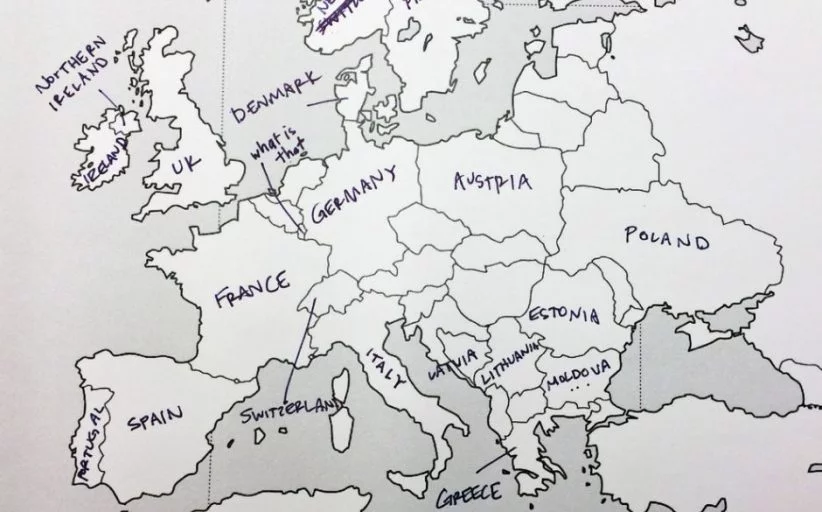 NORTHERN
IRELAND
IRELAND
UK
DENMARK
what is
that
GERMANY
AUSTRIA
POLAND
FRANCE
ESTONIA
ITALY
LATVIA
LITHUANIA
MOLDOVA
...
SWITZERLAND
SPAIN
PORTUGAL
GREECE